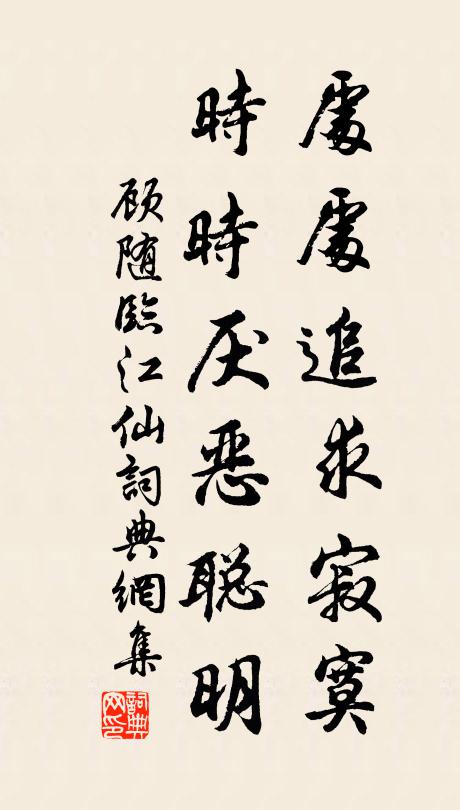 處處追求寂寞
時時厌恶聪明
顾随臨江仙詞典網集
詞典网印